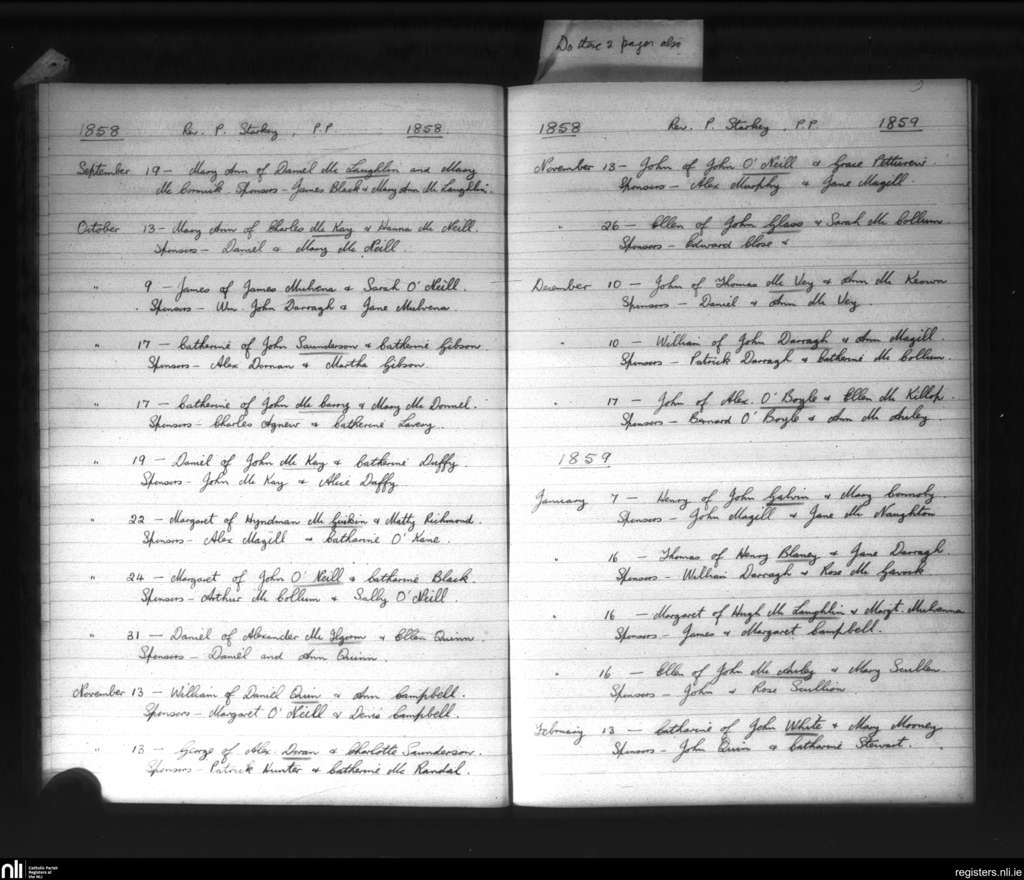 Do these 2 pages also
1858 Rev. P. Starkey, P.P. 1858.
September 19 - Mary Ann of Daniel Mc Laughlin and Mary
Mc Cormick. Sponsors - James Black & Mary Ann Mc Laughlin.
October 13 - Mary Ann of Charles Mc Kay & Hanna Mc Neill.
Sponsors - Daniel & Mary Mc Neill.
" 9 - James of James Mulvena & Sarah O'Neill.
Sponsors - Wm. John Darragh & Jane Mulvena.
" 17 - Catherine of John Saunderson & Catherine Gibson.
Sponsors - Alex Dornan & Martha Gibson.
" 17 - Catherine of John Mc Garry & Mary Mc Donnel.
Sponsors - Charles Agnew & Catherine Lavery.
" 19 - Daniel of John Mc Kay & Catherine Duffy.
Sponsors - John Mc Kay & Alice Duffy
" 22 - Margaret of Hyndman Mc & Matty Richmond.
Sponsors - Alex Magill & Catharine O'Kane.
" 24 - Margaret of John O'Neill & Catharine Black.
Sponsors - Arthur Mc Collum & Sally O'Neill.
" 31 - Daniel of Alexander Mc & Ellen Quinn
Sponsors - Daniel and Ann Quinn.
November 13 - William of Daniel Quin & Ann Campbell.
Sponsors - Margaret O'Neill & Denis Campbell.
" 13 - George of Alex. Doran & Charlotte Saunderson.
Sponsors - Patrick Hunter & Catherine Mc Randal.
1858 Rev. P. Starkey, P.P. 1859
November 13 - John of John O'Neill & Grace Petticrew.
Sponsors - Alex Murphy & Jane Magill.
" 26 - Ellen of John Glass & Sarah Mc Collum
Sponsors - Edward Close &
December 10 - John of Thomas Mc Vey & Ann Mc Keown
Sponsors - Daniel & Ann Mc Vey.
" 10 - William of John Darragh & Ann Magill.
Sponsors - Patrick Darragh & Catherine Mc Collum.
" 17 - John of Alex. O'Boyle & Ellen Mc Killop.
Sponsors - Bernard O'Boyle & Ann Mc Auley.
1859
January 7 - Henry of John Galvin & Mary Connoly.
Sponsors - John Magill & Jane Mc Naughton
" 16 - Thomas of Henry Blaney & Jane Darragh.
Sponsors - William Darragh & Rose Mc Gavock.
" 16 - Margaret of Hugh Mc Laughlin & Margt. Mulvanna
Sponsors - James & Margaret Campbell.
" 16 - Ellen of John Mc Auley & Mary Scullen
Sponsors - John & Rose Scullion
February 13 - Catharine of John White & Mary Mooney
Sponsors - John Quin & Catharine Stewart.
nli Catholic Parish Registers at the NLI
registers.nli.ie